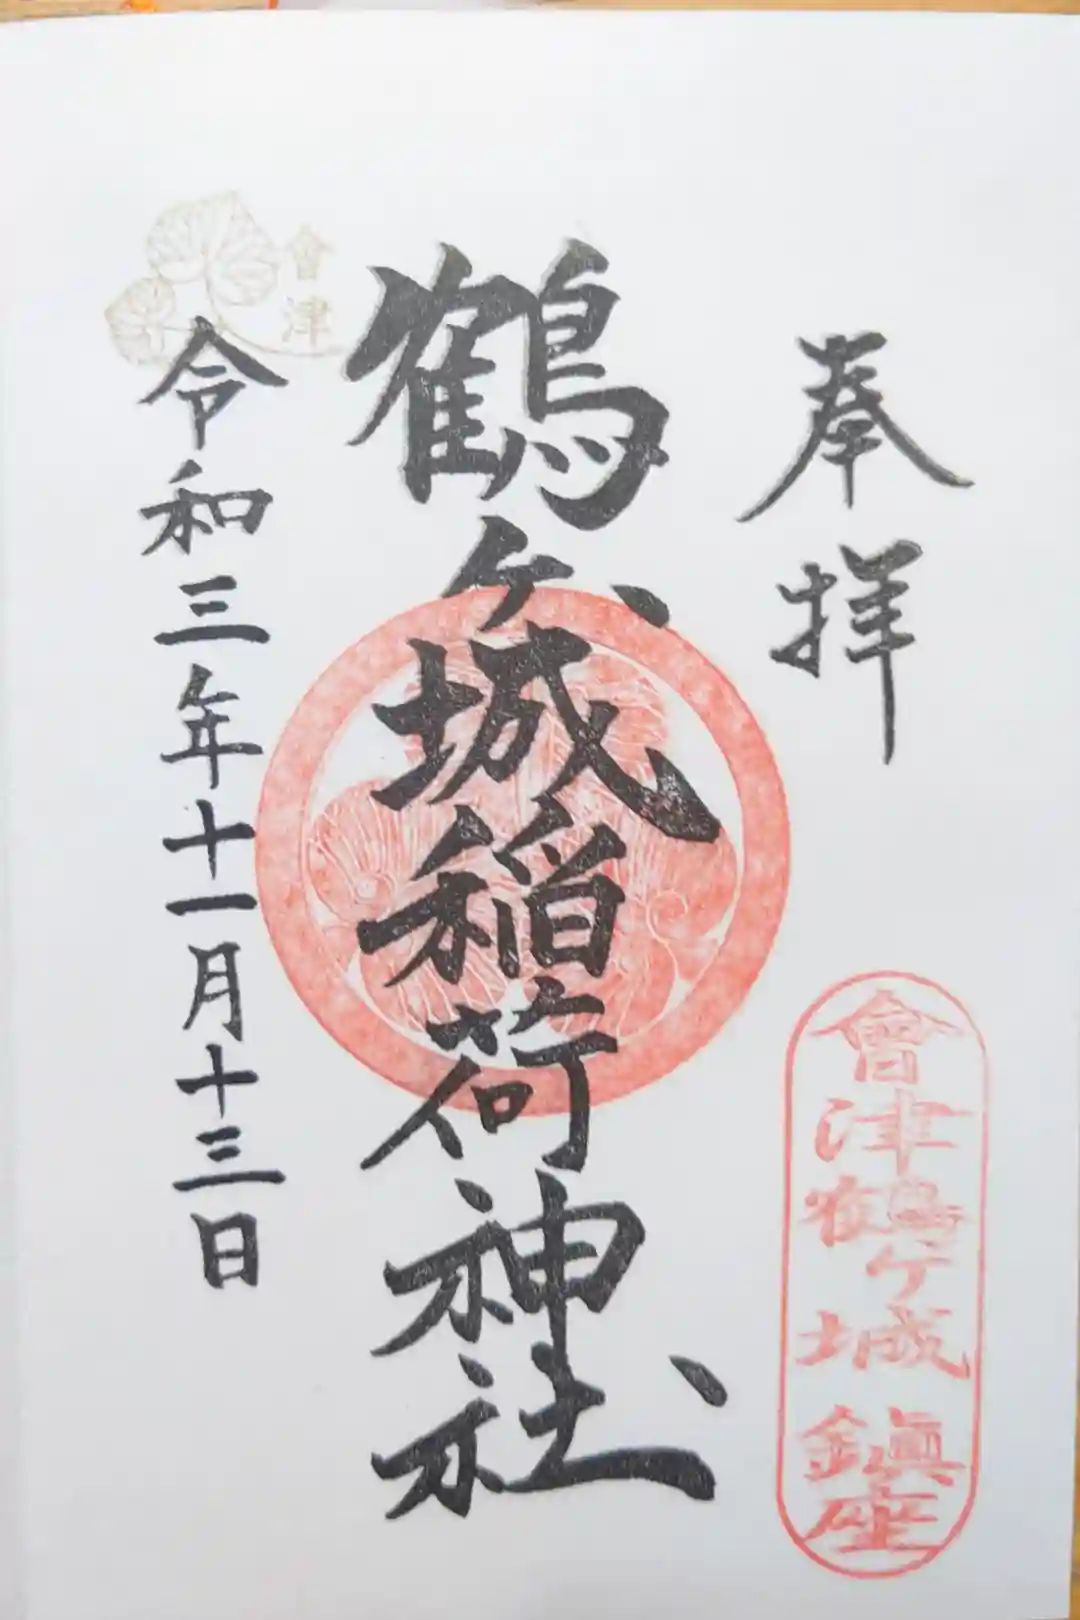 奉拝
會津鶴ケ城鎮座
鶴ケ城稲荷神社
會津
令和三年十一月十三日